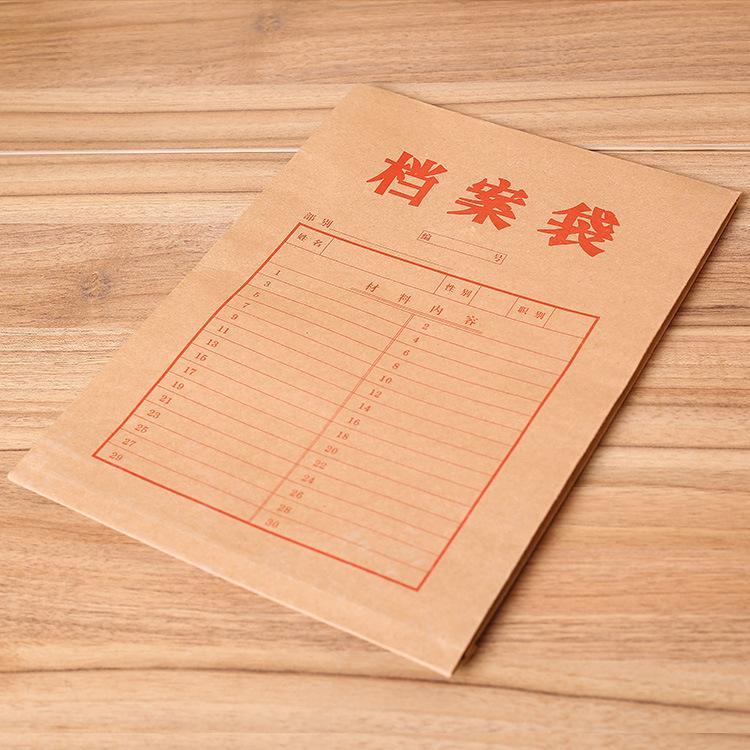 档案袋
部别 编 号
姓名 性别 职别
材料内容
1 2
3 4
5 6
7 8
9 10
11 12
13 14
15 16
17 18
19 20
21 22
23 24
25 26
27 28
29 30